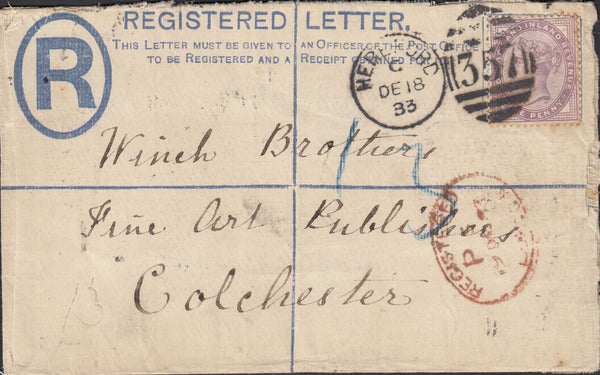 REGISTERED LETTER.
THIS LETTER MUST BE GIVEN TO AN OFFICER OF THE POST OFFICE
TO BE REGISTERED AND A RECEIPT OBTAINED FOR
R
HEREFORD
C
DE 18
83
357
AND INLAND REVENUE
PENNY
Winch Brothers
Fine Art Publishers
Colchester
REGISTERED
P